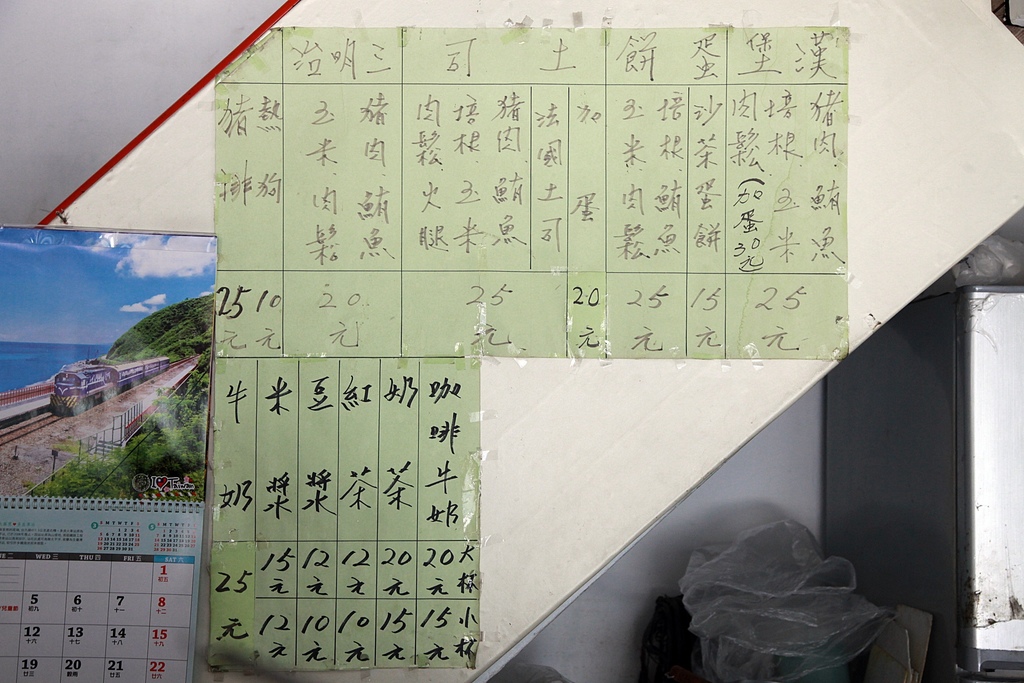 漢堡
豬肉 鮪魚
培根 玉米
肉鬆(加蛋30元)
25元
蛋餅
沙茶蛋餅
15元
培根 鮪魚
玉米 肉鬆
25元
土司
加蛋
20元
法國土司
豬肉 鮪魚
培根 玉米
肉鬆 火腿
25元
三明治
豬肉 鮪魚
玉米 肉鬆
20元
熱狗
10元
豬排
25元
咖啡牛奶
大杯 20元
小杯 15元
奶茶
20元
15元
紅茶
12元
10元
豆漿
12元
10元
米漿
15元
12元
牛奶
25元
I Taiwan
WED 三 THU 四 FRI 五 SAT 六
1 初五
5 初九 6 初十 7 十一 8 十二
12 十六 13 十七 14 十八 15 十九
19 廿三 20 穀雨 21 廿五 22 廿六